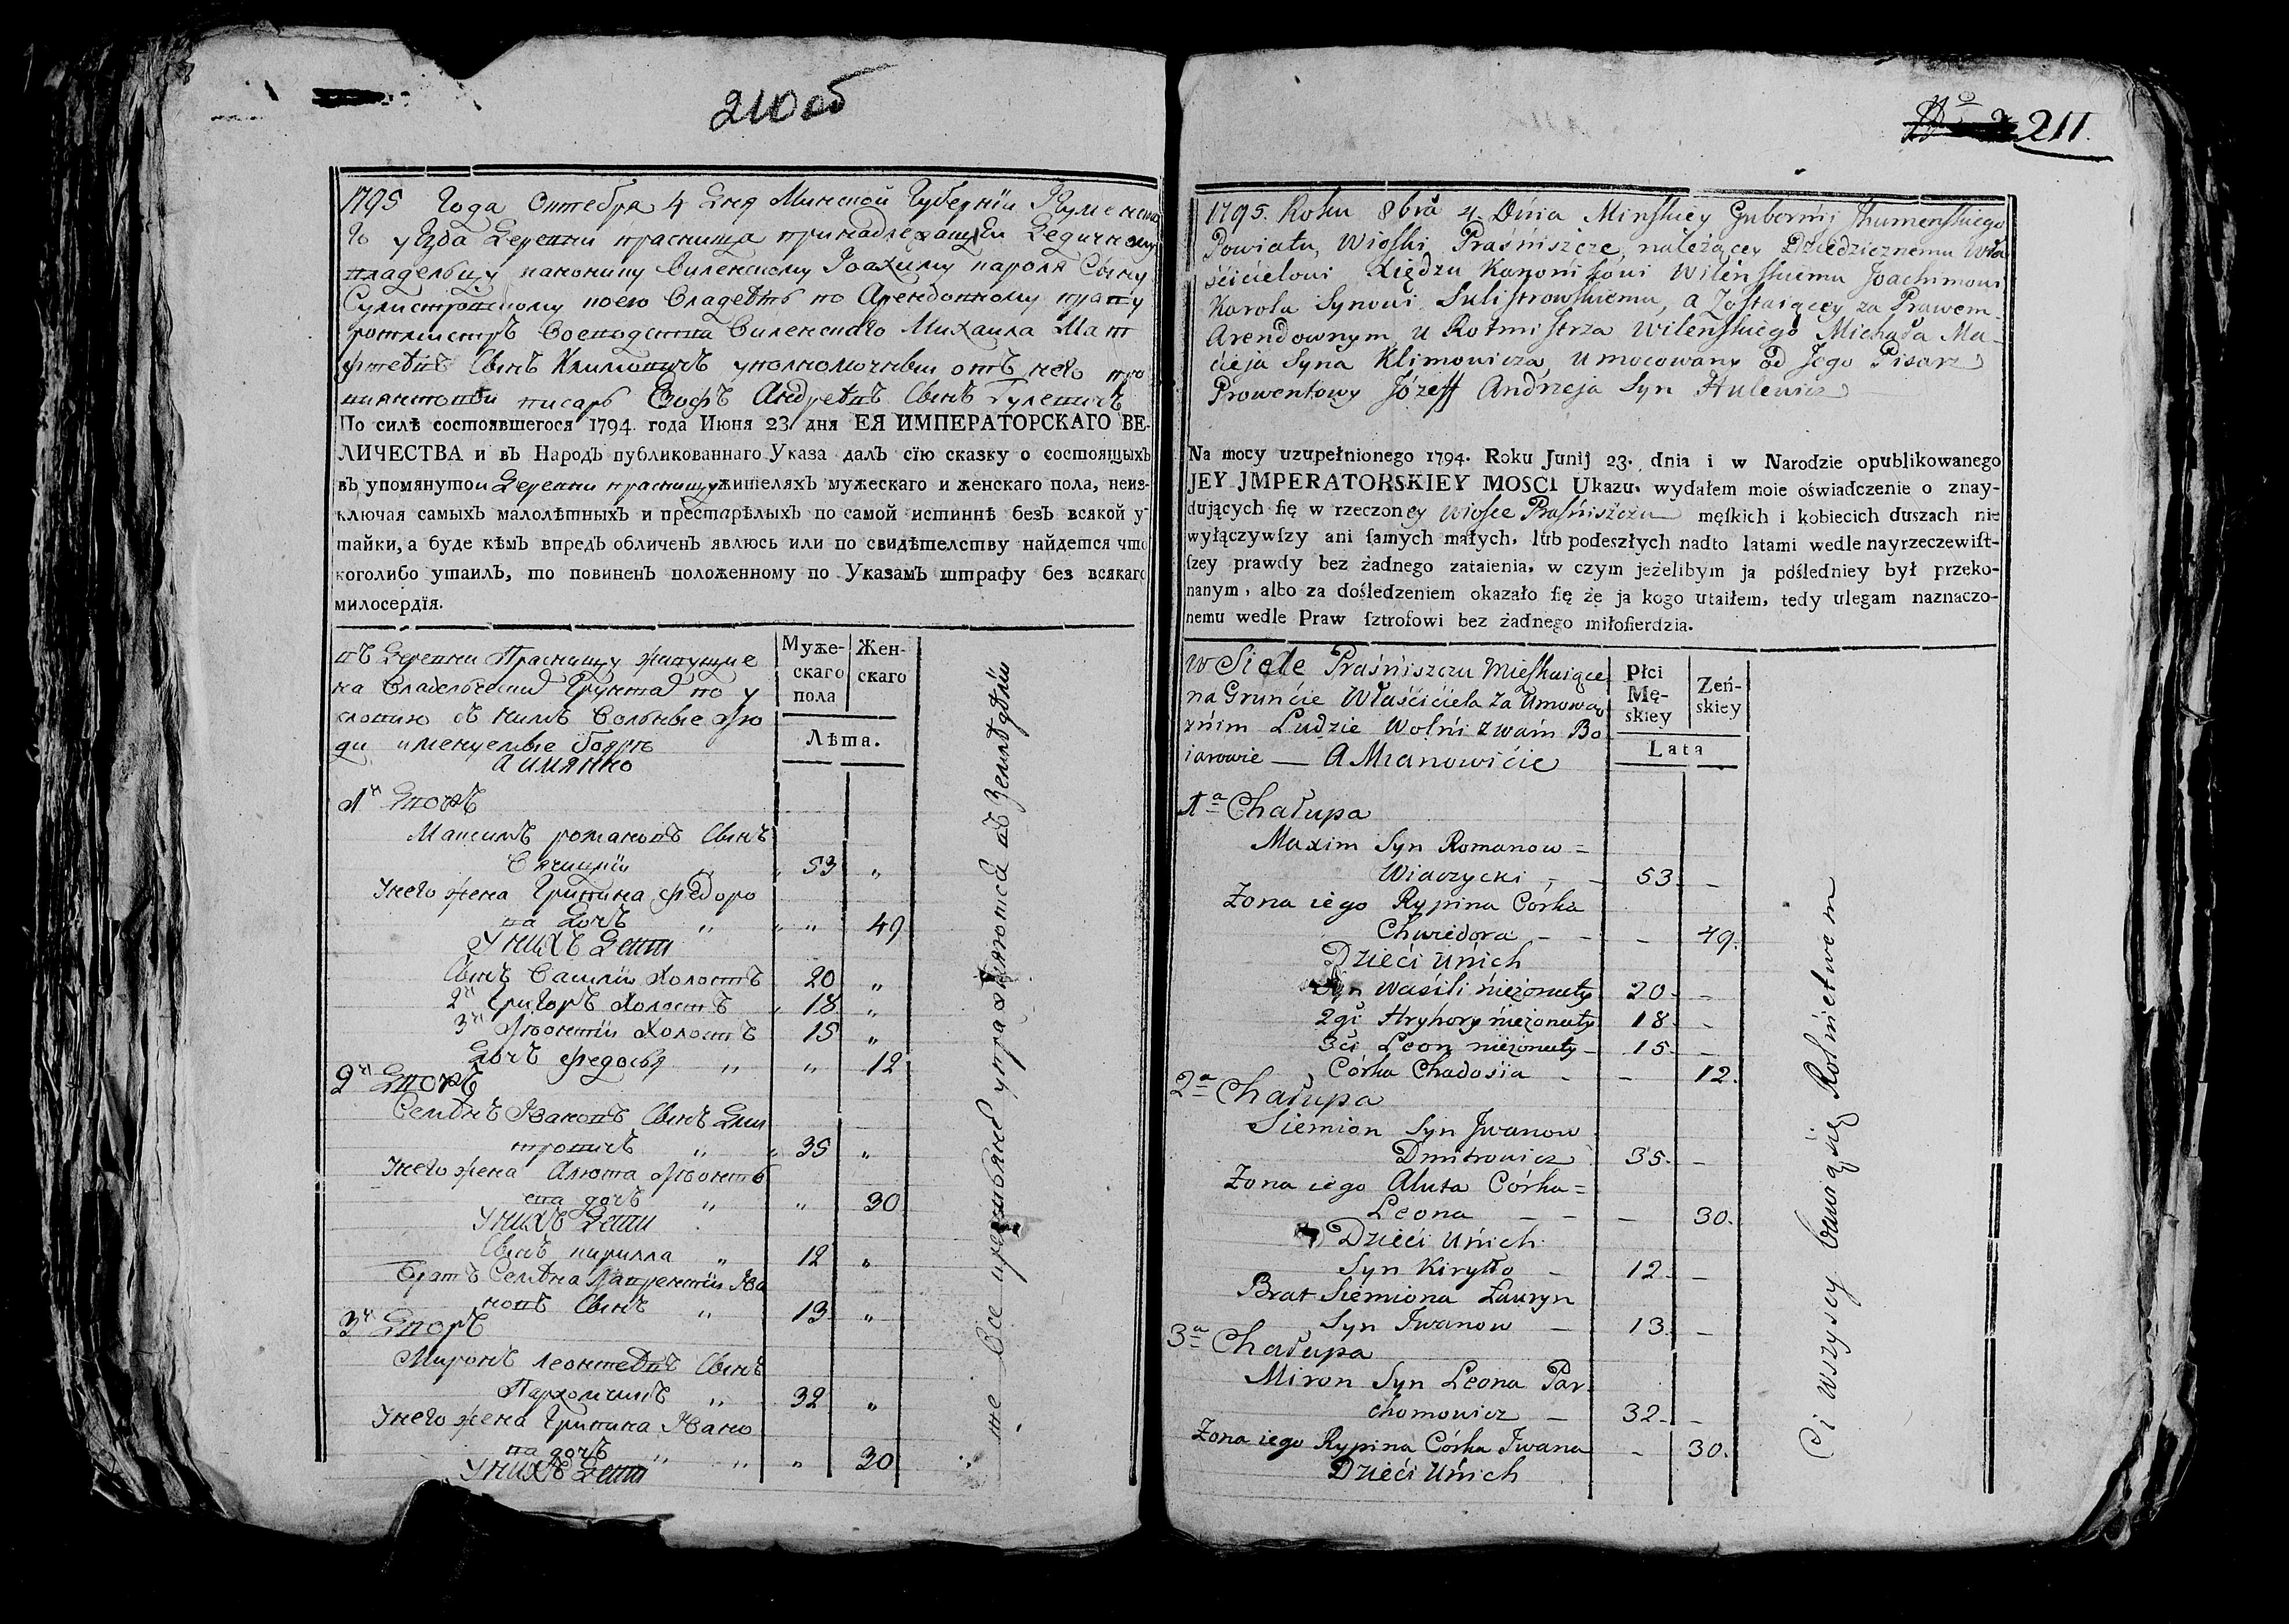 210 об
1795 Года Октебря 4 Дня Минской Губернїи Игуменска
го уѣзда Деревни праснища принадлежащей Ѣедичному
владельцу канонику Виленскому Іоахиму кароля Сыну
Сулистровскому коею владеѣтъ по Арендовному праву
ротмистръ Воеводства Виленскаго Михаила Мат
фтевъ Сынъ Климовичъ уполномочный отъ него про
писарь Андреевъ Сынъ Гулевичъ
По силѣ состоявшегося 1794. года Июня 23 дня ЕЯ ИМПЕРАТОРСКАГО ВЕ-
ЛИЧЕСТВА и въ Народъ публикованнаго Указа далъ сїю сказку о состоящыхъ
въ упомянутои Деревни праснищу жителяхъ мужескаго и женскаго пола, неиз-
ключая самыхъ малолѣтныхъ и престарѣлыхъ по самой истиннѣ безъ всякой у-
тайки, а буде кѣмъ впредь обличенъ явлюсь или по свидѣтелству найдется что
коголибо утаилъ, то повиненъ положенному по Указамъ штрафу без всякаго
милосердїя.
въ Деревни Праснищу живущие
на Владельческой Грунта по у
словию съ нимъ Вольные Лю
ди именуемые бояре
А имянно
Муже-
скаго
пола
Жен-
скаго
Лѣта.
1й Дворъ
Максимъ романовъ Сынъ
Вячицкїи „ 53 „
Унего жена Грипина Федоро
ва Дочъ „ „ 49
Унихъ Дети
Сынъ Василїи Холостъ 20 „
2й Григоръ Холостъ 18 „
3й Леонтїи Холостъ 15 „
Дочъ Федосья „ „ 12
2й Дворъ
Семѣнъ Ивановъ Сынъ Дми
тровичъ „ 35 „
Унего жена Алюта Леонтѣ
ева дочъ „ „ 30
Унихъ Дети
Сынъ кирилла „ 12 „
Братъ Семѣна Лаврентїи Ива
новъ Сынъ „ 13 „
3й Дворъ
Миронъ Леонтеѣвъ Сынъ
Пархомчикъ „ 32 „
Унего жена Грипина Ивано
ва дочъ „ „ 30
Унихъ Дети
те Все упражняются въ Земледѣлїи
211.
1795. Roku 8bra 4. Dnia Minskiey Gubernij Jhumenskiego
Powiatu, Wioski Praśniszcze, należącey Dziedzicznemu Wła
ścicielowi Xiędzu Kanonikowi Wileńskiemu Joachimowi
Karola Synowi Sulistrowskiemu, a Zostaiącey za Prawem
Arendownym u Rotmistrza Wileńskiego Michała Ma-
cieja Syna Klimowicza, umocowany od Jego Pisarz
Prowentowy Józeff Andrzeja Syn Hulewicz
Na mocy uzupełnionego 1794. Roku Junij 23. dnia i w Narodzie opublikowanego
JEY JMPERATORSKIEY MOSCI Ukazu, wydałem moie oświadczenie o znay-
dujących ſię w rzeczoney wiosce Praśniszczu męſkich i kobiecich duszach nie
wyłączywſzy ani ſamych małych, lub podeszłych nadto latami wedle nayrzeczewiſt-
ſzey prawdy bez żadnego zataienia, w czym jeżelibym ja pośledniey był przeko-
nanym, albo za dośledzeniem okazało ſię że ja kogo utaiłem, tedy ulegam naznaczo-
nemu wedle Praw ſztrofowi bez żadnego miłoſierdzia.
w Siele Praśniszczu Mieszkaiące
na Gruncie Właściciela Za Umową
znim Ludzie Wolni zwani Bo
iarowie — A Mianowicie
Płci
Mę-
skiey
Zeń-
skiey
Lata
1a Chałupa
Maxim Syn Romanow =
Wiaczycki - - 53. -
Zona iego Rypina Córka
Chwiedora - - - 49.
Dzieći Unich
Syn Waśili nieżonaty 20. -
2gi Hryhory nieżonaty 18 -
3ći Leon nieżonaty - 15. -
Córka Chadosia - - 12.
2a Chałupa
Siemion Syn Jwanow
Dmitrowicz 35. -
Zona iego Aluta Córka =
Leona - - - 30.
Dzieći Unich
Syn Kiryłło - 12. -
Brat Siemiona Lauryn
Syn Jwanow - 13. -
3a Chałupa
Miron Syn Leona Par
chomowicz - 32. -
Zona iego Rypina Córka Jwana - 30.
Dzieći Unich
Ci wszyscy bawią się Rolnictwem